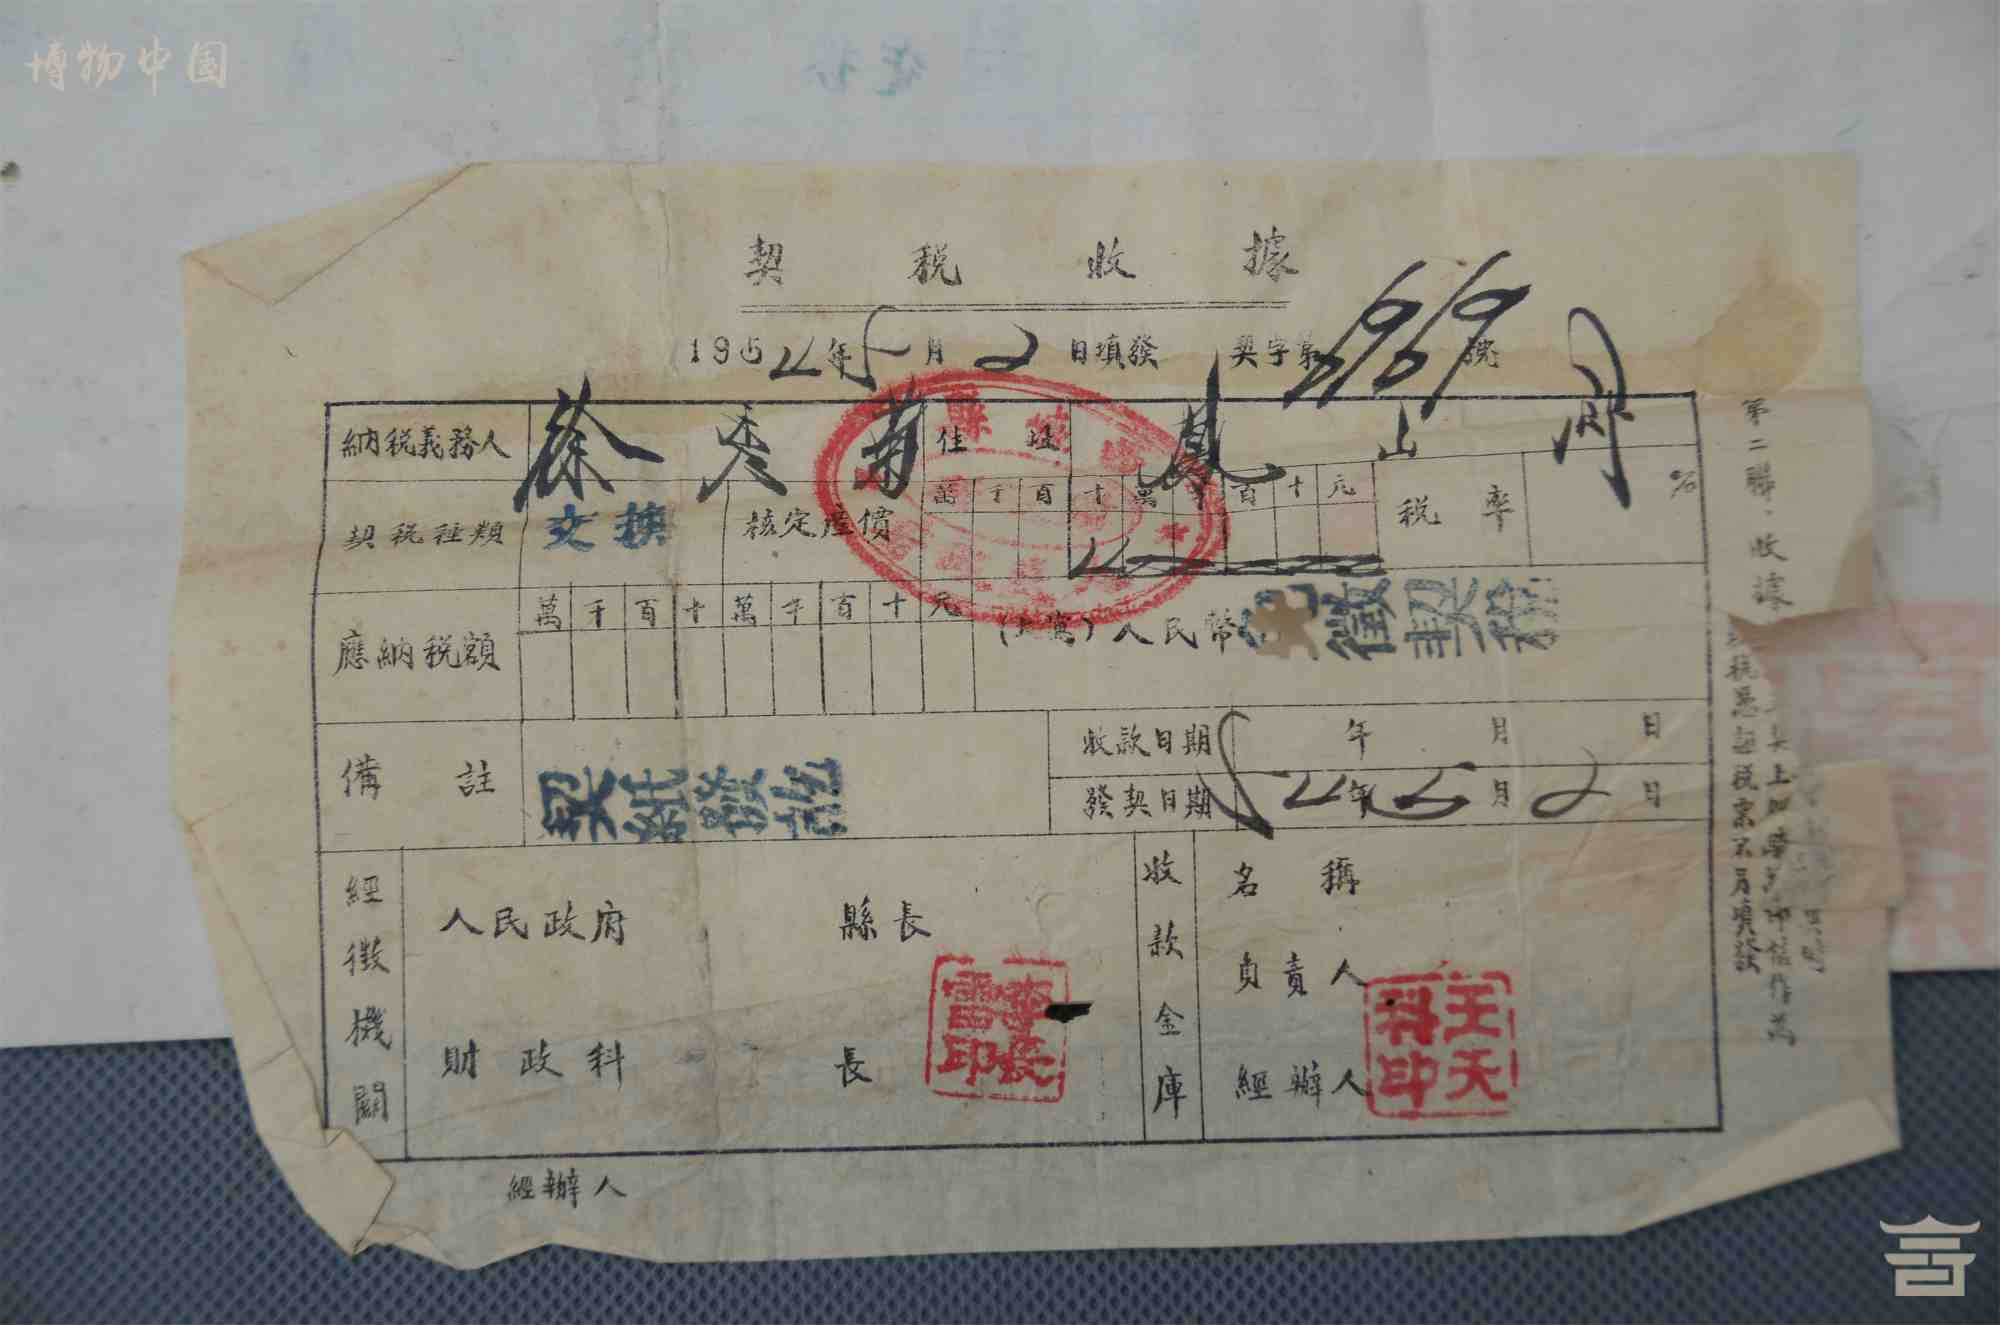 博物中国
契稅收據
1954年5月2日填發 契字第 號
納稅義務人 徐 南 住址 鳳山
契稅種類 交換 核定產價 萬千百十萬千百十元 稅率 %
應納稅額 萬千百十萬千百十元 (大寫)人民幣 免徵契稅
備註 契紙發訖 收款日期 年 月 日
發契日期 54年5月2日
經徵機關 人民政府 縣長
財政科 長
收款金庫 名稱
負責人
經辦人
李長雷印
王天科印
經辦人
第二聯：收據